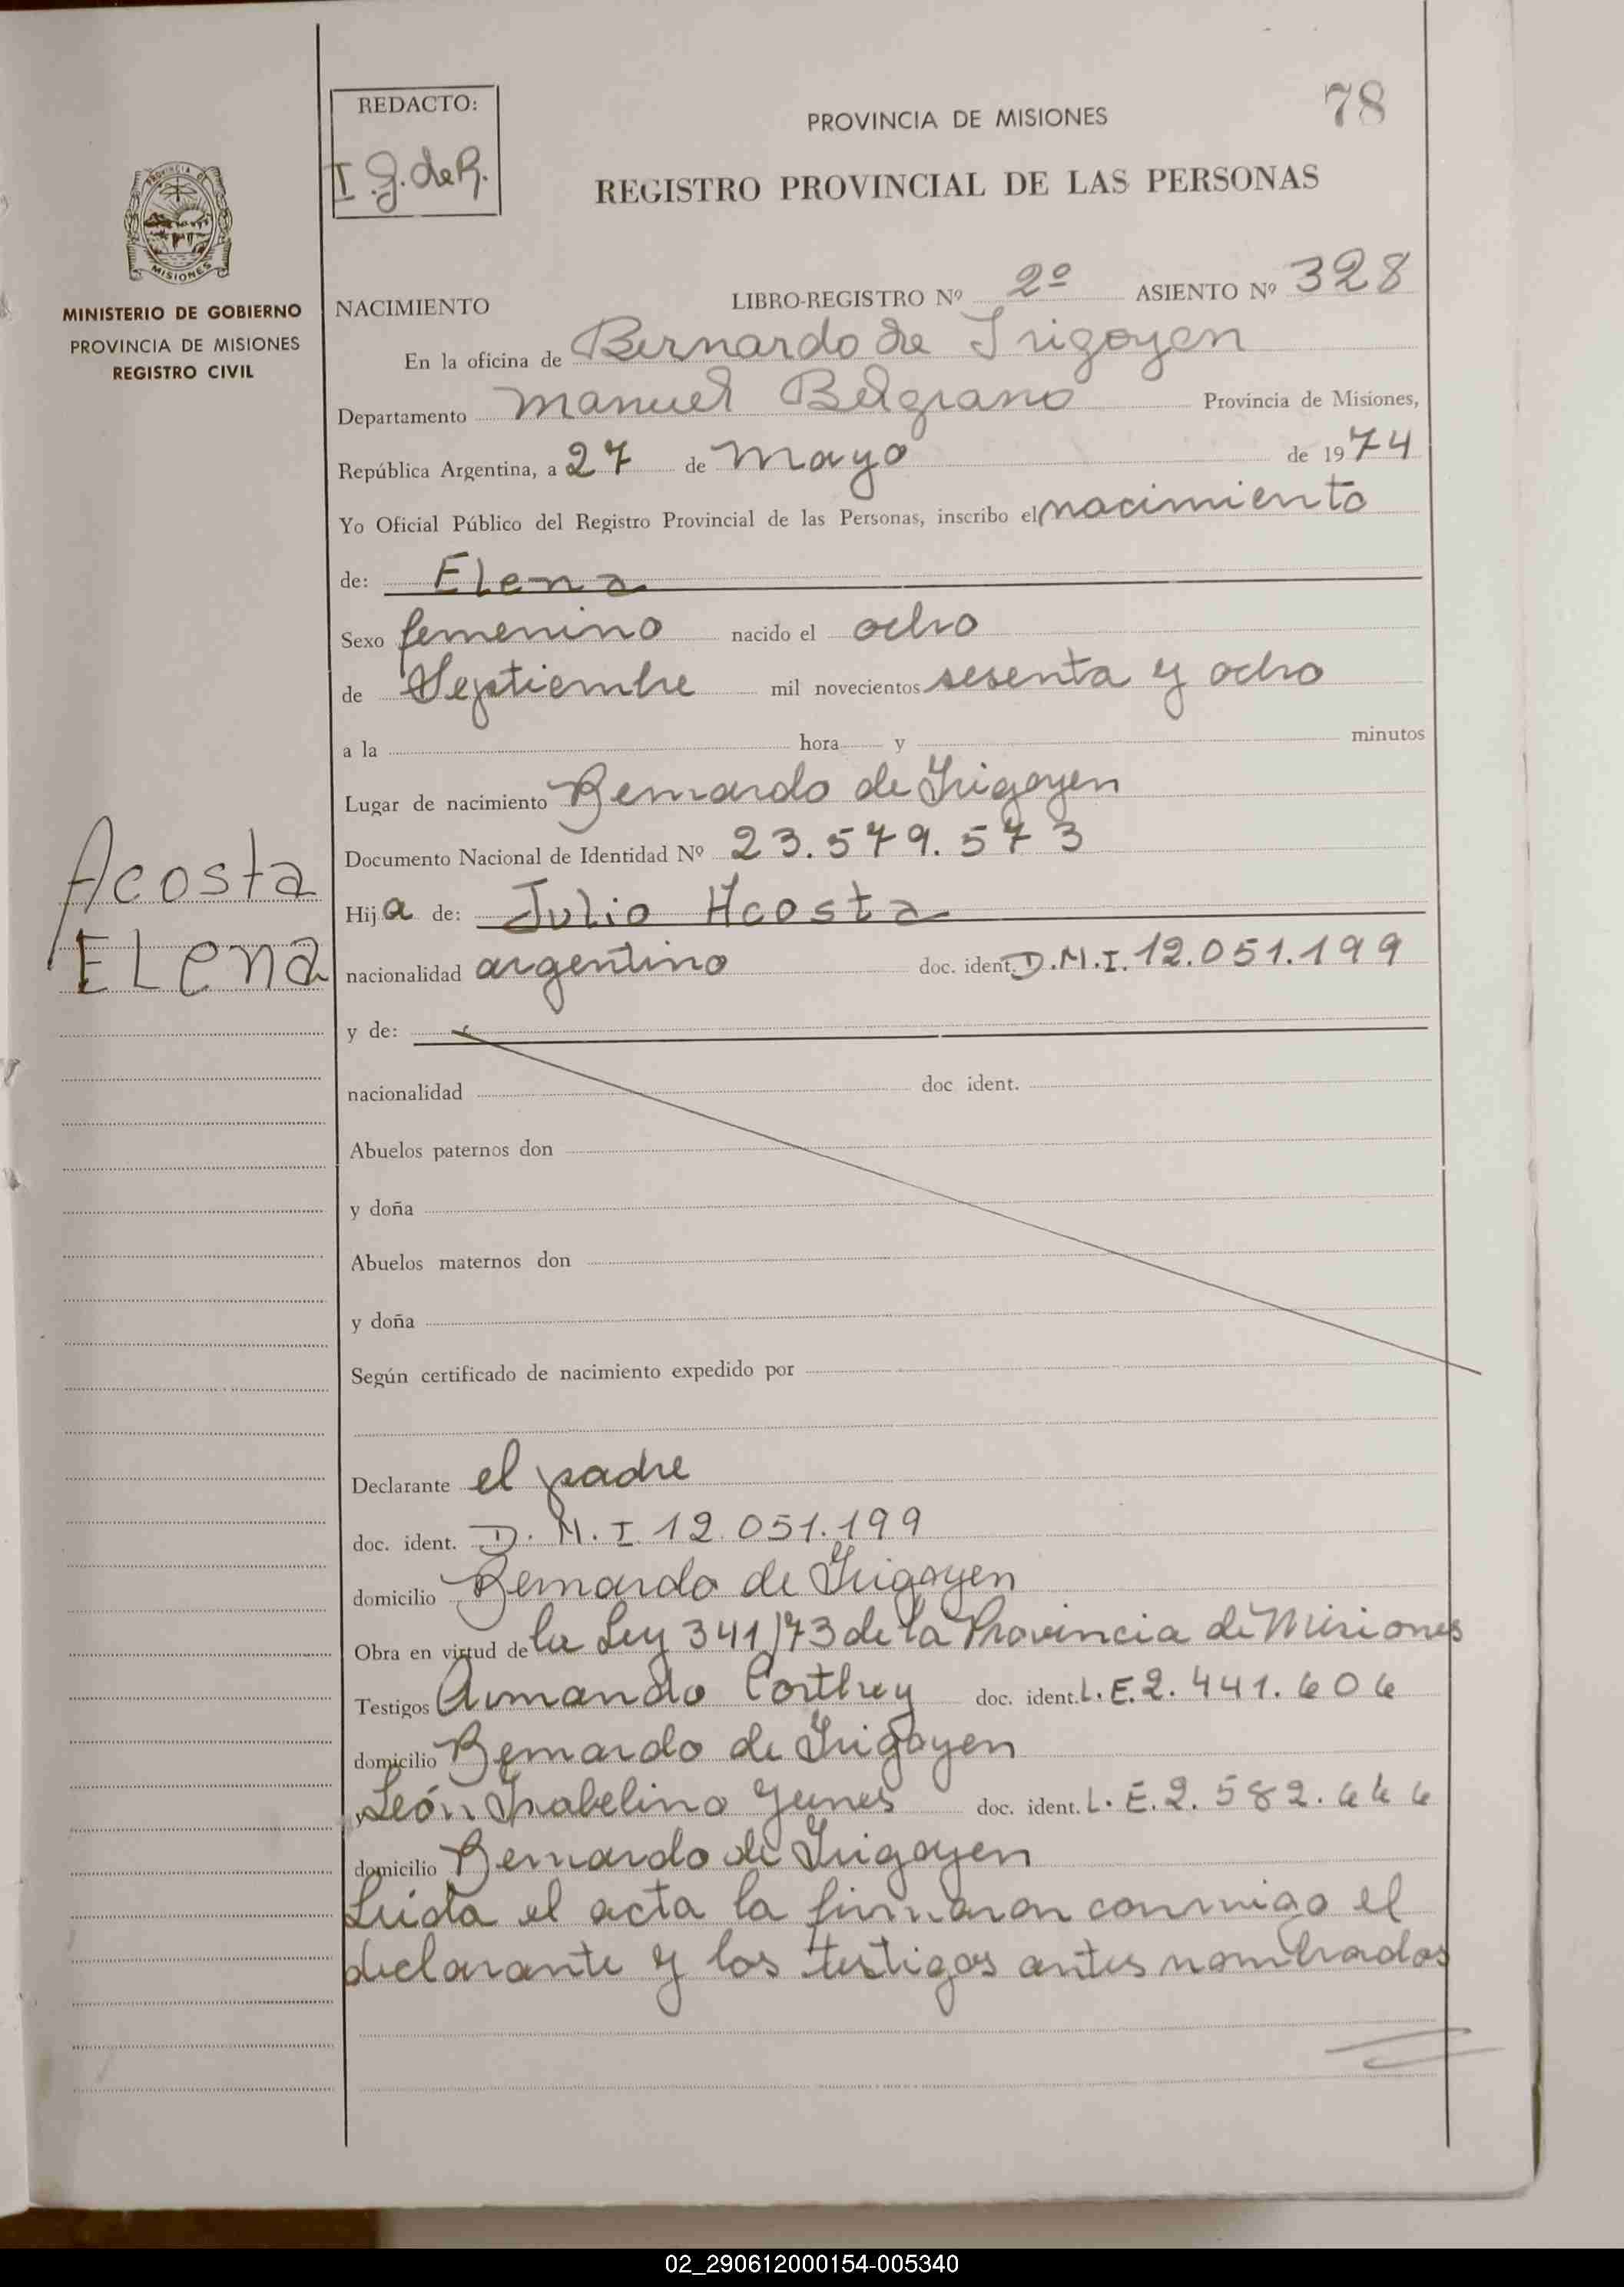 REDACTO:
I.g.de R.
PROVINCIA DE MISIONES
78
REGISTRO PROVINCIAL DE LAS PERSONAS
PROVINCIA DE
MISIONES
MINISTERIO DE GOBIERNO
PROVINCIA DE MISIONES
REGISTRO CIVIL
NACIMIENTO LIBRO-REGISTRO Nº 2º ASIENTO Nº 328
En la oficina de Bernardo de Irigoyen
Departamento Manuel Belgrano Provincia de Misiones,
República Argentina, a 27 de Mayo de 1974
Yo Oficial Público del Registro Provincial de las Personas, inscribo el nacimiento
de: Elena
Sexo femenino nacido el ocho
de Septiembre mil novecientos sesenta y ocho
a la hora y minutos
Lugar de nacimiento Bernardo de Irigoyen
Documento Nacional de Identidad Nº 23.579.573
Acosta
Elena
Hija de: Julio Acosta
nacionalidad argentino doc. ident. D.N.I. 12.051.199
y de:
nacionalidad doc ident.
Abuelos paternos don
y doña
Abuelos maternos don
y doña
Según certificado de nacimiento expedido por
Declarante el padre
doc. ident. D.N.I 12.051.199
domicilio Bernardo de Irigoyen
Obra en virtud de la Ley 341/73 de la Provincia de Misiones
Testigos Armando Corthey doc. ident. L.E. 2.441.606
domicilio Bernardo de Irigoyen
y León Isabelino doc. ident. L.E. 2.582.666
domicilio Bernardo de Irigoyen
Leida el acta la firmaron conmigo el
declarante y los testigos antes nombrados
02_290612000154-005340